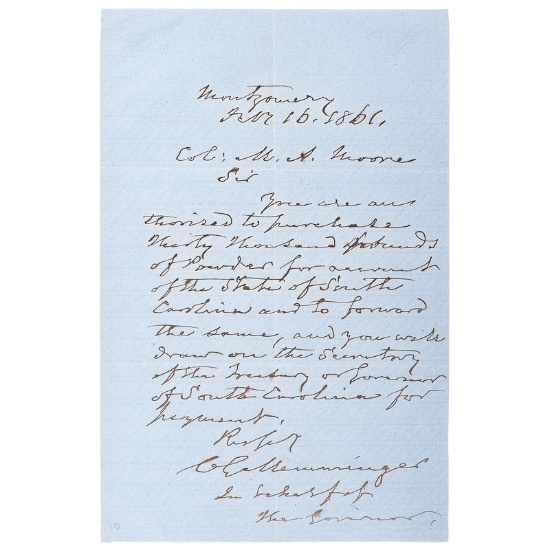 Montgomery
Feby 16. 1861.
Col: M. A. Moore
Sir
You are au
thorized to purchase
thirty thousand pounds
of Powder for account
of the State of South
Carolina and to forward
the same, and you will
draw on the Secretary
of the Treasury or Governor
of South Carolina for
payment.
Respy
C G Memminger
In behalf of
the Governor.